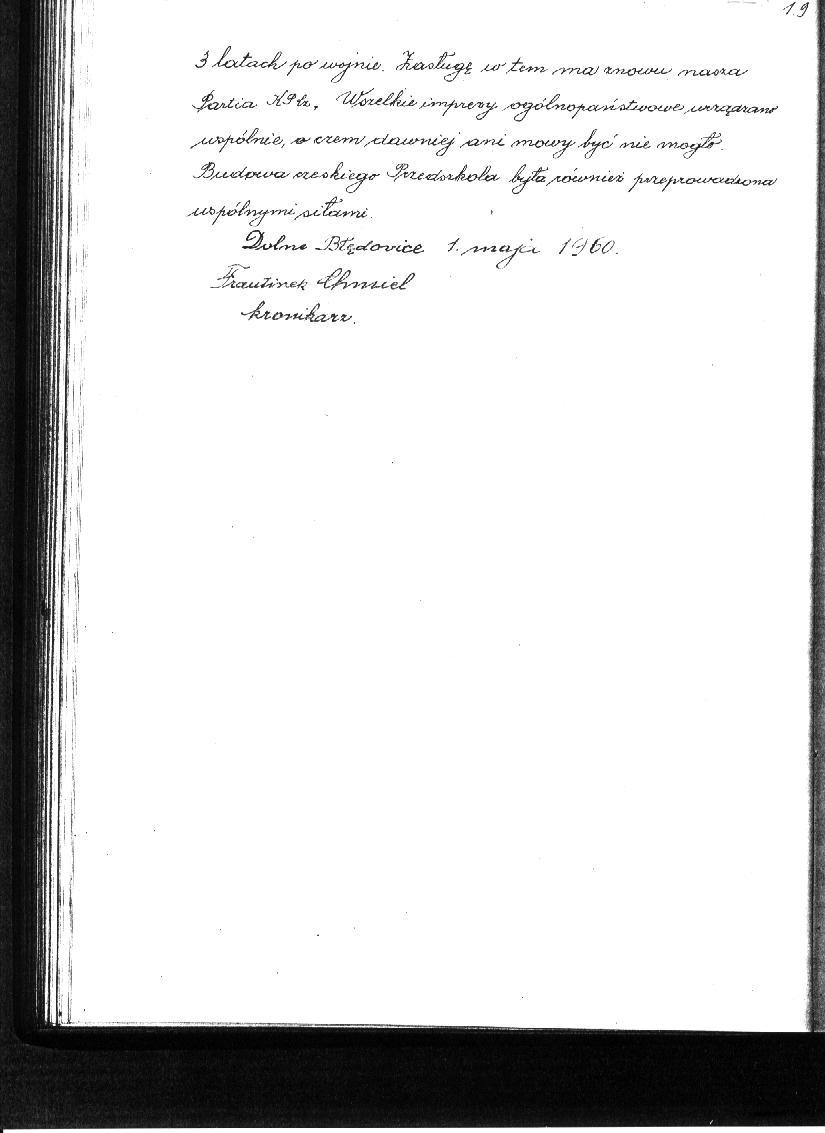 19
3 latach po wojnie. Zasługę w tem ma znowu nasza
Partia KPCz. Wszelkie imprezy ogólnopaństwowe urządzano
wspólnie, o czem dawniej ani mowy być nie mogło.
Budowa czeskiego Przedszkola była również przeprowadzona
wspólnymi siłami.
Dolne Błędovice 1. maja 1960.
Frautinek Chmiel
kronikarz.